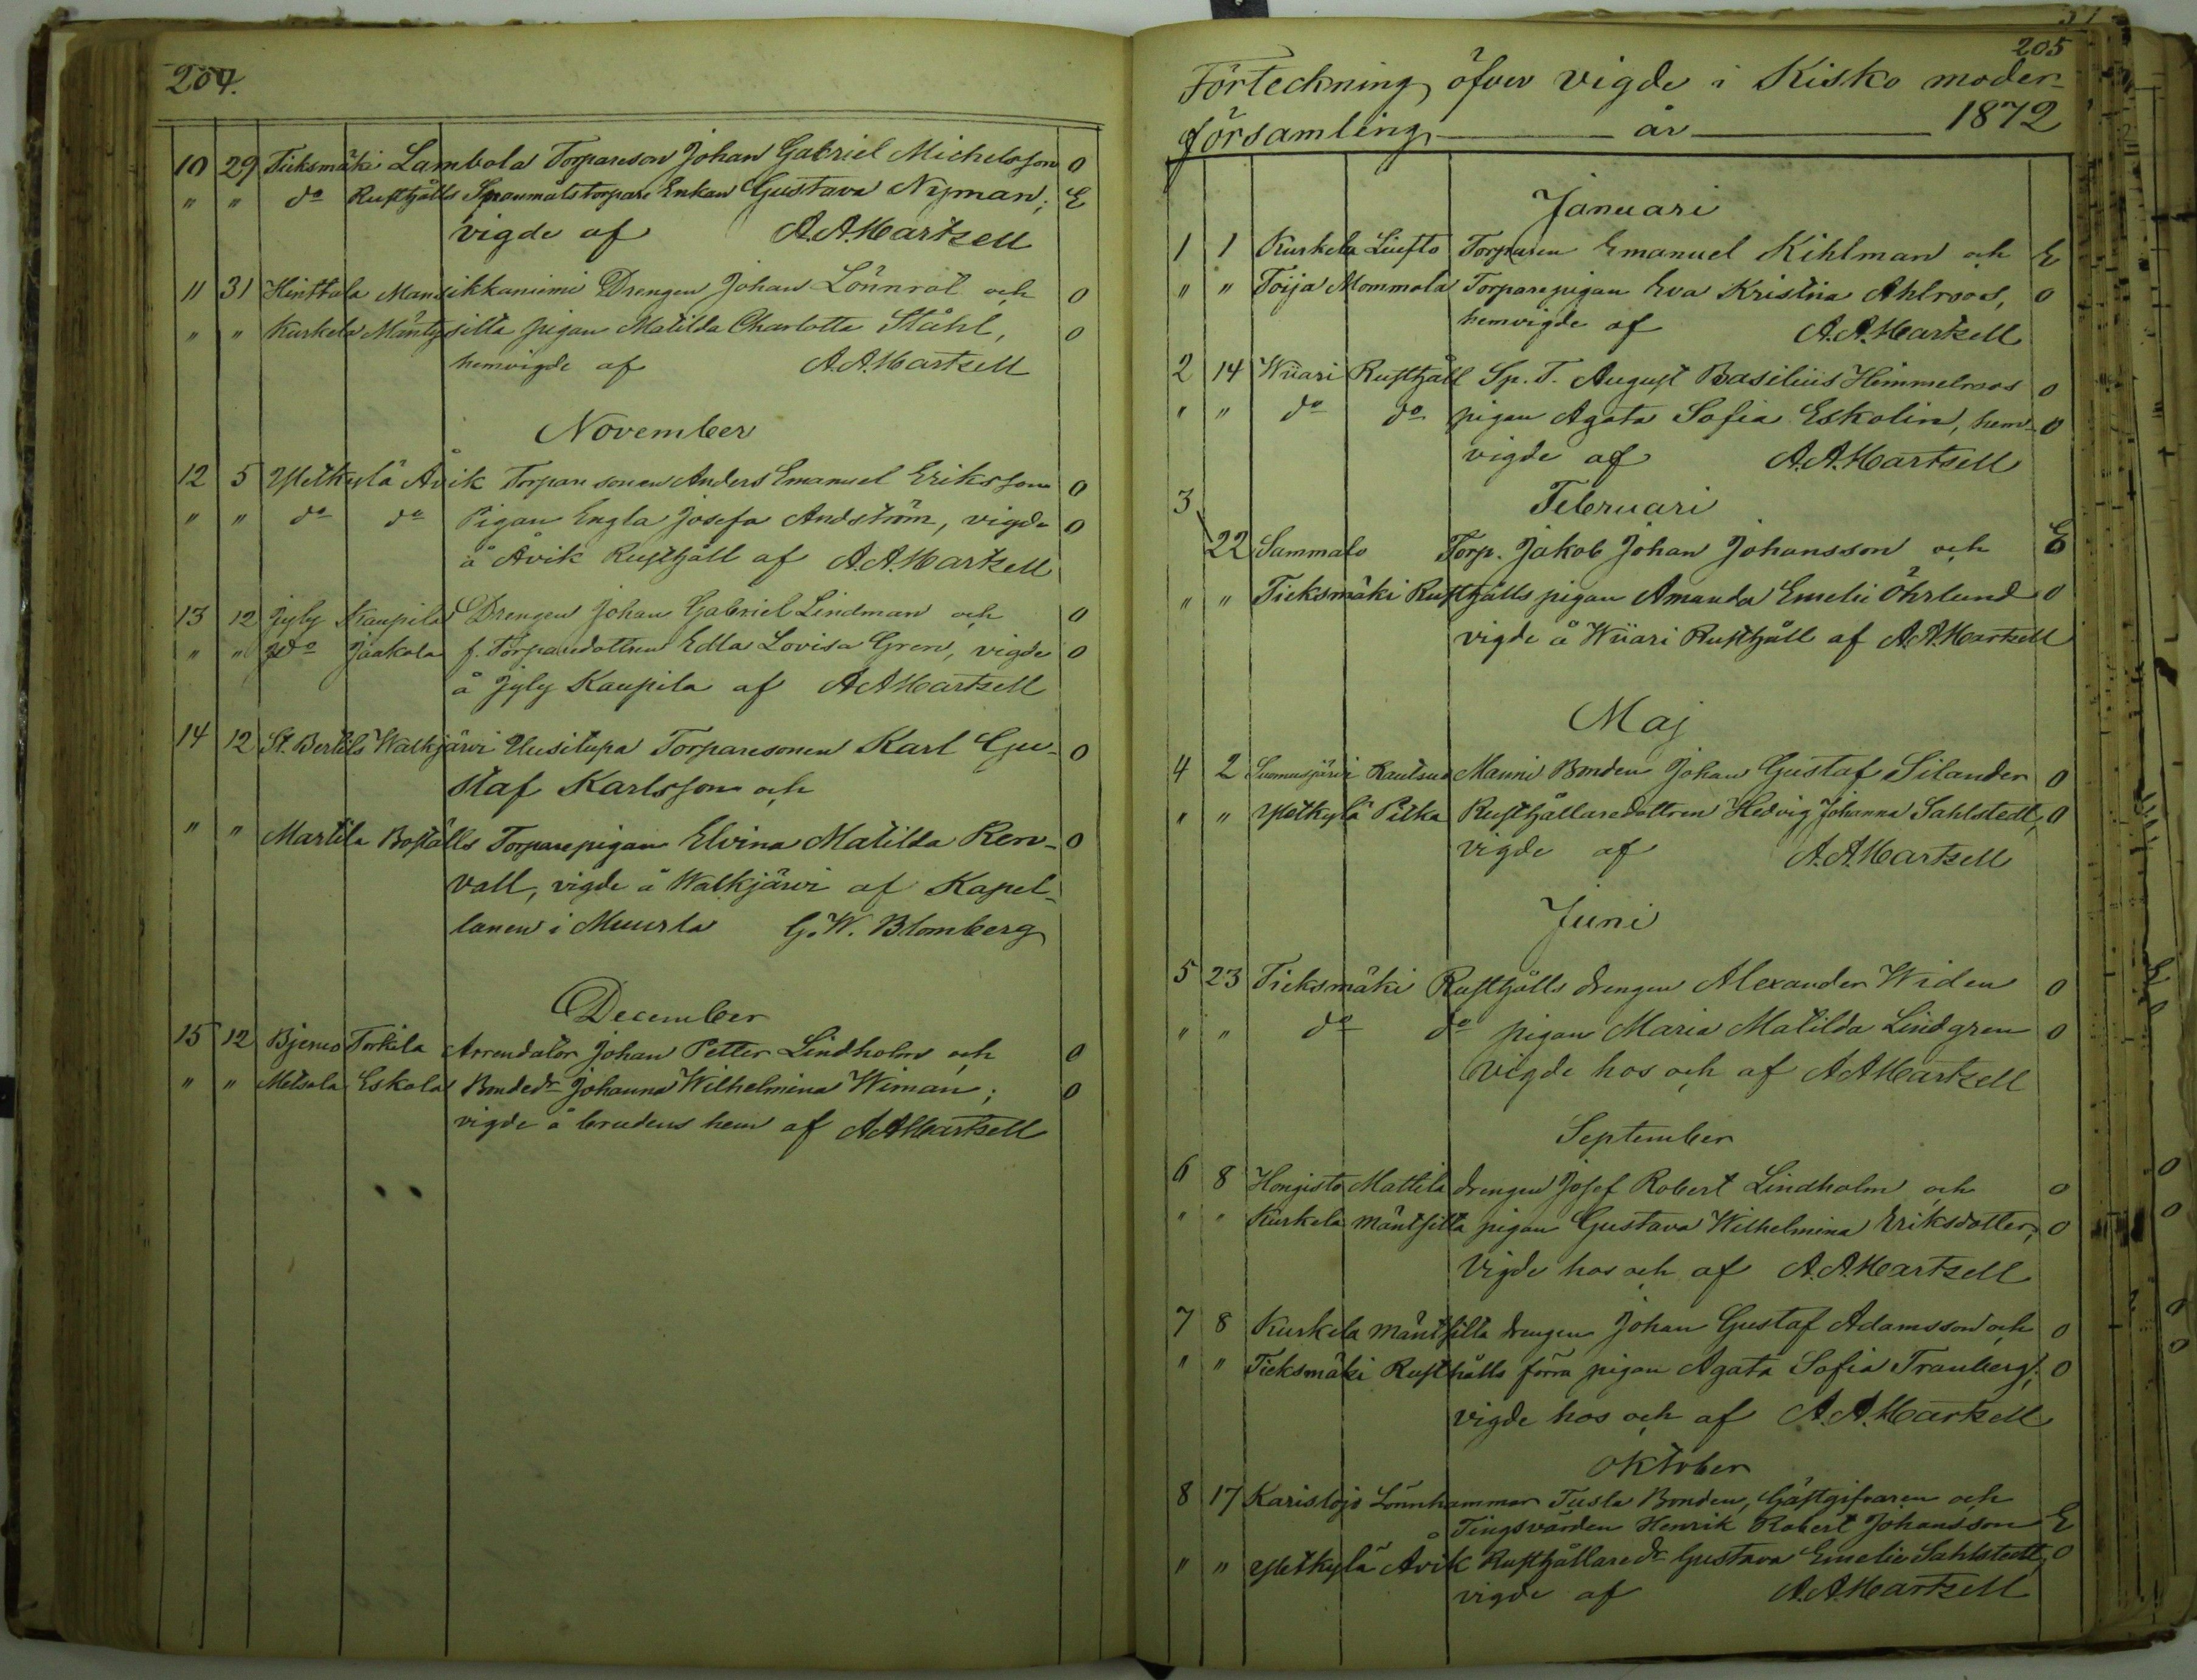 204.
10 29 Tieksmäki Lambola Torpareson Johan Gabriel Michelsson O
" " do Rusthålls Spanmålstorpare Enkan Gustava Nyman; E
vigde af A.A. Hartzell
11 31 Hinttala Mansikkaniemi Drengen Johan Lönnrot och O
" " Kurkela Mäntysilta pigan Matilda Charlotta Ståhl, O
hemvigde af A.A. Hartzell
November
12 5 Ylitkylä Åvik Torparesonen Anders Emanuel Eriksson O
" " do do Pigan Engla Josefa Andström, vigde O
å Åvik Rusthåll af A.A. Hartzell
13 12 Jyly Kaupila Drengen Johan Gabriel Lindman och O
" " do Jaakola f. Torparedottren Edla Lovisa Gren, vigde O
å Jyly Kaupila af A A Hartzell
14 12 St. Bertils Walkjärvi Uusitupa Torparesonen Karl Gu- O
staf Karlsson och
" " Martila Boställs Torparepigan Elvina Matilda Ren- O
vall, vigde å Walkjärvi af Kapel-
lanen i Muurla G. W. Blomberg
December
15 12 Bjerno Torkila Arrendator Johan Petter Lindholm och O
" " Metsola Eskola Bondedr Johanna Wilhelmina Wiman; O
vigde å brudens hem af A A Hartzell
205
Förteckning öfver vigde i Kisko moder-
församling år 1872
Januari
1 1 Kurkela Liufto Torparen Emanuel Kihlman och E
" " Toija Mommola Torparepigan Eva Kristina Ahlroos, O
hemvigde af A.A. Hartzell
2 14 Wiiari Rusthåll Sp. T. August Basilius Himmelroos O
" " do do pigan Agata Sofia Eskolin, hem- O
vigde af A.A. Hartzell
3 Februari
22 Sammalo Torp. Jakob Johan Johansson och E
" " Tieksmäki Rusthålls pigan Amanda Emelie Öhrlund O
vigde å Wiiari Rusthåll af A.A. Hartzell
Maj
4 2 Suomusjärvi Rautsuo Manni Bonden Johan Gustaf Silander O
" " Ylitkylä Pitka Rusthållaredottren Hedvig Johanna Sahlstedt, O
vigde af A.A. Hartzell
Juni
5 23 Tieksmäki Rusthålls drengen Alexander Widen O
" " do do pigan Maria Matilda Lindgren O
Vigde hos och af A A Hartzell
September
6 8 Hongisto Mattila drengen Josef Robert Lindholm och O
" " Kurkela Mäntsilta pigan Gustava Wilhelmina Eriksdotter, O
Vigde hos och af A.A. Hartzell
7 8 Kurkela Mäntsilta drengen Johan Gustaf Adamsson och O
" " Tieksmäki Rusthålls förra pigan Agata Sofia Tranberg; O
vigde hos och af A.A. Hartzell
Oktober
8 17 Karislojo Lönnhammar Tusla Bonden, Gästgifvaren och
Tingsvärden Henrik Robert Johansson E
" " Ylitkylä Åvik Rusthållaredr Gustava Emelie Sahlstedt, O
vigde af A.A. Hartzell